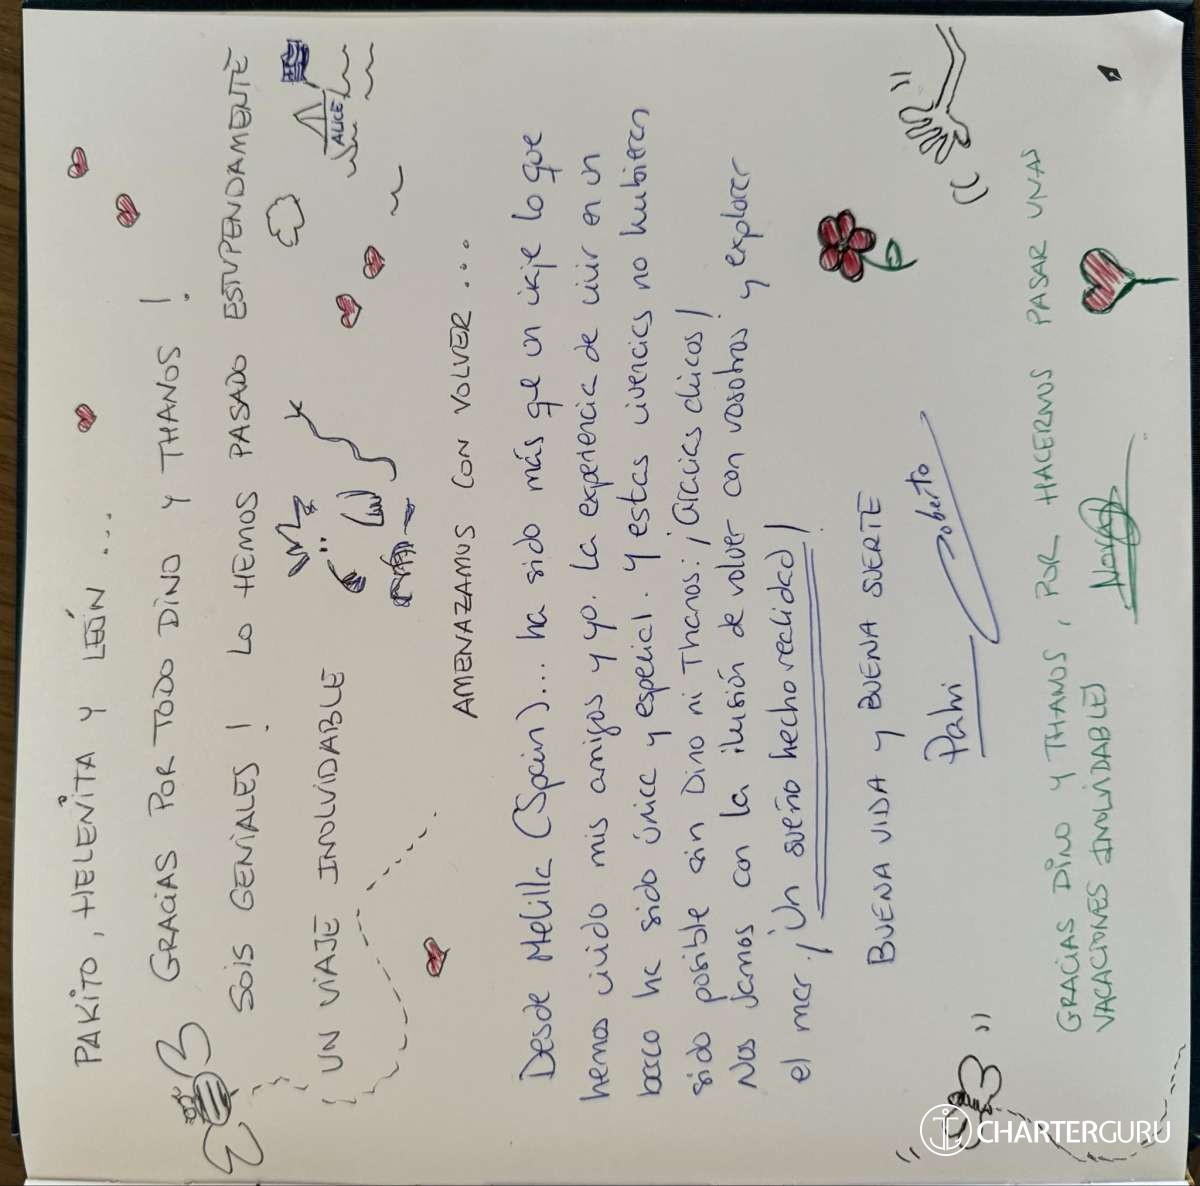 PAKITO, HELENITA Y LEÓN...
GRACIAS POR TODO DINO Y THANOS!
SOIS GENIALES! LO HEMOS PASADO ESTUPENDAMENTE
ALICE
UN VIAJE INOLVIDABLE
AMENAZAMOS CON VOLVER...
Desde Melilla (Spain)... ha sido más que un viaje lo que
hemos vivido mis amigos y yo. La experiencia de vivir en un
barco ha sido única y especial. Y estas vivencias no hubieran
sido posible sin Dino ni Thanos: ¡Gracias chicos!
Nos vamos con la ilusión de volver con vosotros y explorar
el mar. ¡Un sueño hecho realidad!
BUENA VIDA Y BUENA SUERTE
Palmi Roberto
GRACIAS DINO Y THANOS, POR HACERNOS PASAR UNAS
VACACIONES INOLVIDABLES
CHARTERGURU